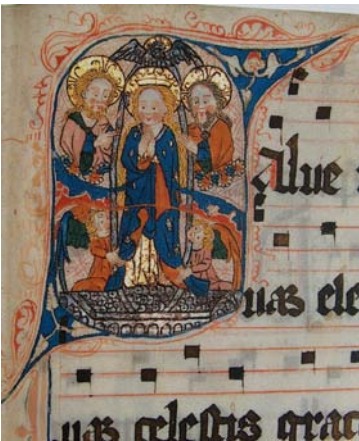 alue
uas ele
uas celestis grac